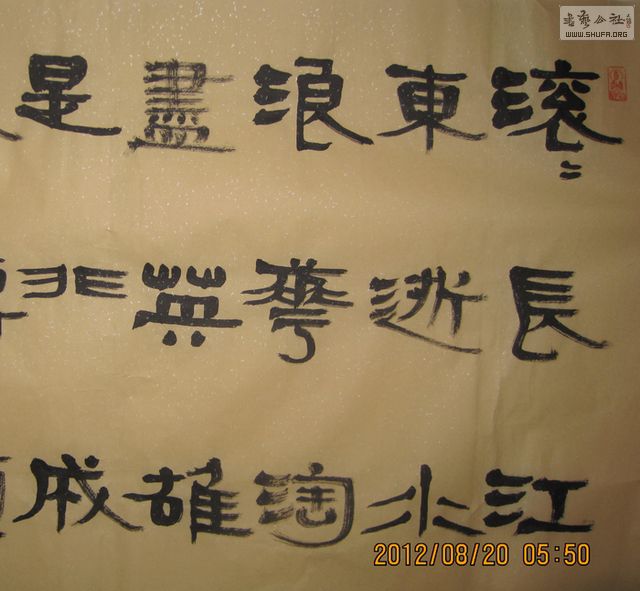 滚〻長江
東逝水
浪華淘
盡英雄
是非成
書藝公社
WWW.SHUFA.ORG
2012/08/20 05:50